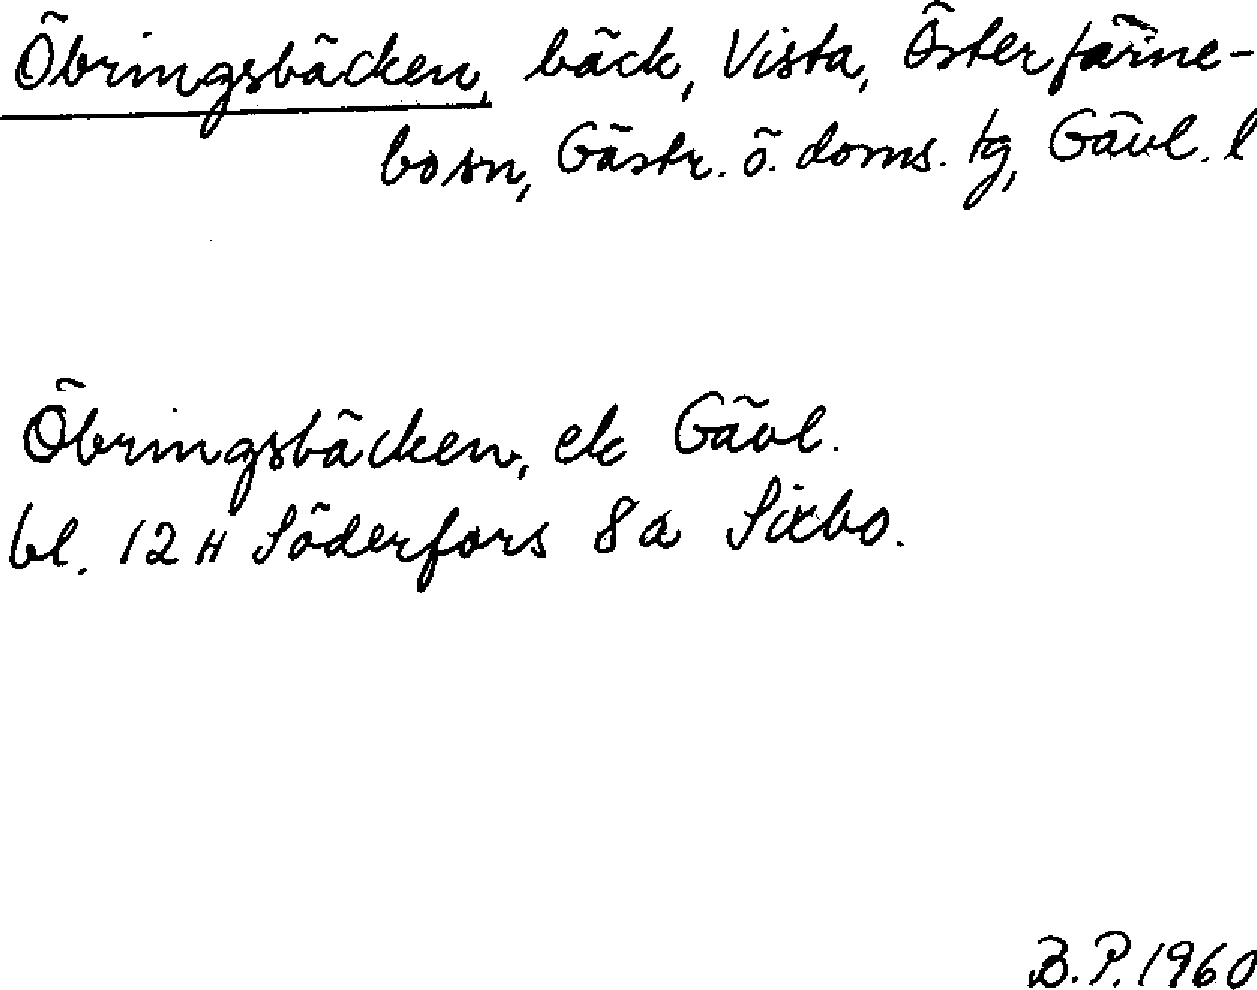 Öbringsbäcken, bäck, Vista, Österfärne-
bo sn, Gästr. ö. doms. tg, Gävl. l
Öbringsbäcken, ek Gävl.
bl. 12H Söderfors 8a Sixbo.
B.P. 1960